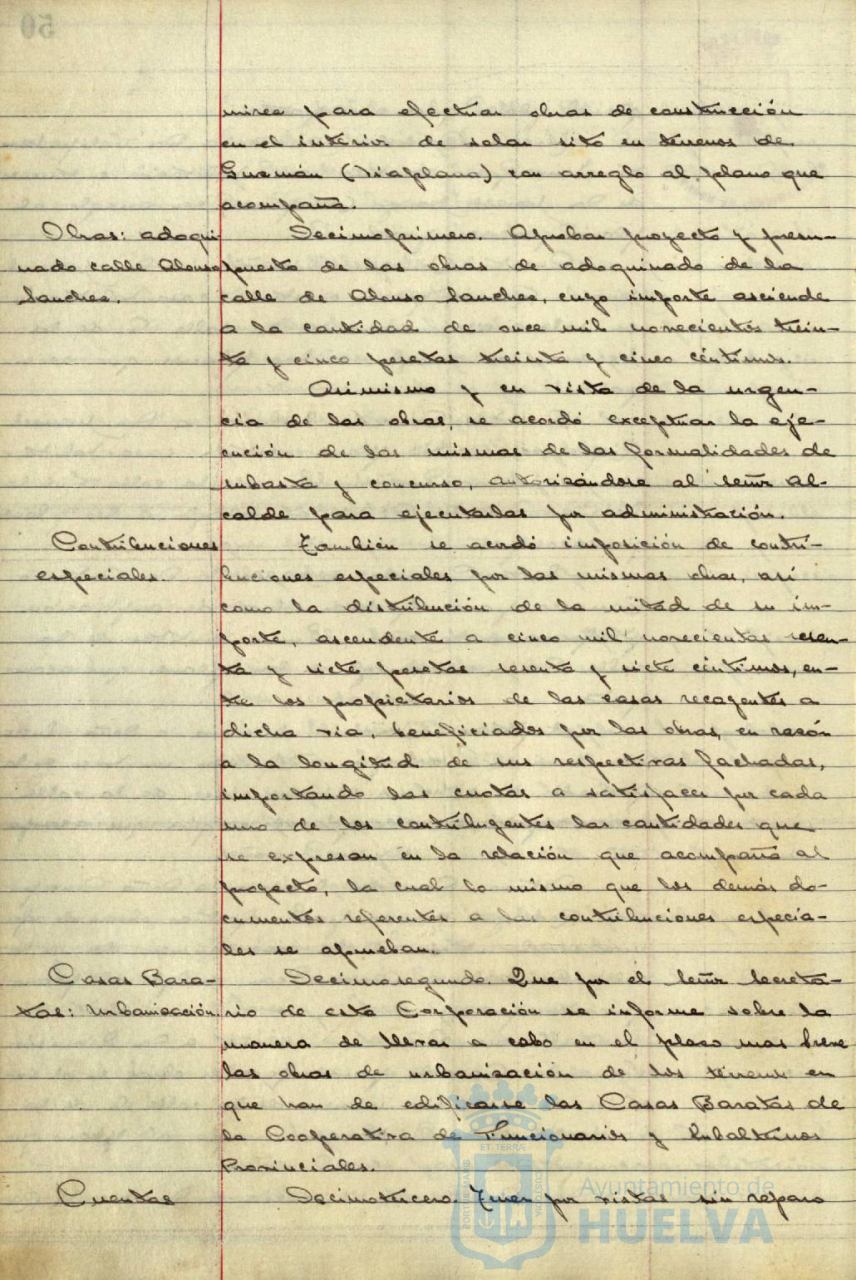 mirez para efectuar obras de construcción
en el interior de solar sito en terrenos de
Guzmán (Viaplana) con arreglo al plano que
acompaña.
Obras: adoqui
nado calle Alonso
Sanchez.
Decimoprimero. Aprobar proyecto y presu-
puesto de las obras de adoquinado de la
calle de Alonso Sanchez, cuyo importe asciende
a la cantidad de once mil novecientos trein-
ta y cinco pesetas treinta y cinco céntimos.
Asimismo y en vista de la urgen-
cia de las obras, se acordó exceptuar la eje-
cución de las mismas de las formalidades de
subasta y concurso, autorizándose al señor Al-
calde para ejecutarlas por administración.
Contribuciones
especiales.
También se acordó imposición de contri-
buciones especiales por las mismas obras, así
como la distribución de la mitad de su im-
porte, ascendente a cinco mil novecientas sesen-
ta y siete pesetas sesenta y siete céntimos, en-
tre los propietarios de las casas recayentes a
dicha via, beneficiados por las obras, en razón
a la longitud de sus respectivas fachadas,
importando las cuotas a satisfacer por cada
uno de los contribuyentes las cantidades que
se expresan en la relación que acompaña al
proyecto, la cual lo mismo que los demás do-
cumentos referentes a las contribuciones especia-
les se aprueban.
Casas Bara-
tas: Urbanización.
Decimosegundo. Que por el señor Secreta-
rio de esta Corporación se informe sobre la
manera de llevar a cabo en el plazo mas breve
las obras de urbanización de los terrenos en
que han de edificarse las Casas Baratas de
la Cooperativa de Funcionarios y Subalternos
Provinciales.
Cuentas
Decimotercero. Tener por vistas sin reparo
Ayuntamiento de
HUELVA